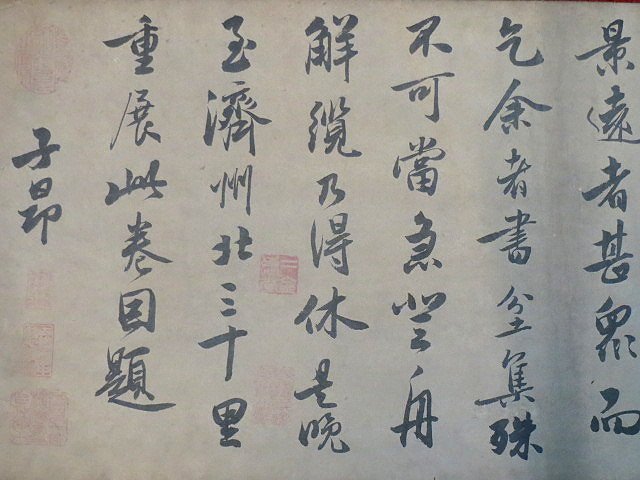 景遠者甚衆而
乞余者書坌集殊
不可當急登舟
解纜乃得休是晚
至濟州北三十里
重展此卷因題
子昂